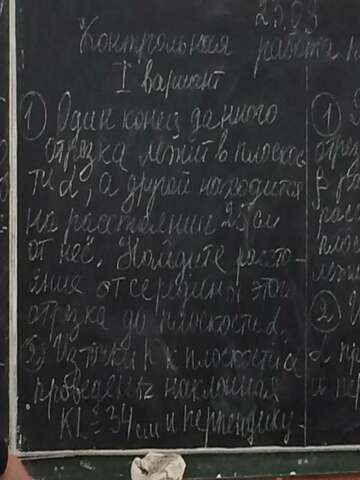 25.03
Контрольная работа
I вариант
① Один конец данного
отрезка лежит в плоскос
ти α, а другой находится
на расстоянии 25 см
от неё. Найдите рассто-
яние от середины этого
отрезка до плоскости α.
② Из точки К к плоскости α
проведены наклонная
KL = 34 см и перпендику-
①
②